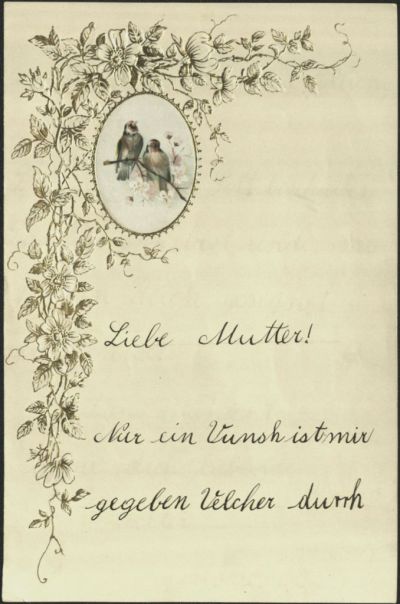 Liebe Mutter!
Nur ein Vunsh ist mir
gegeben Velcher durch